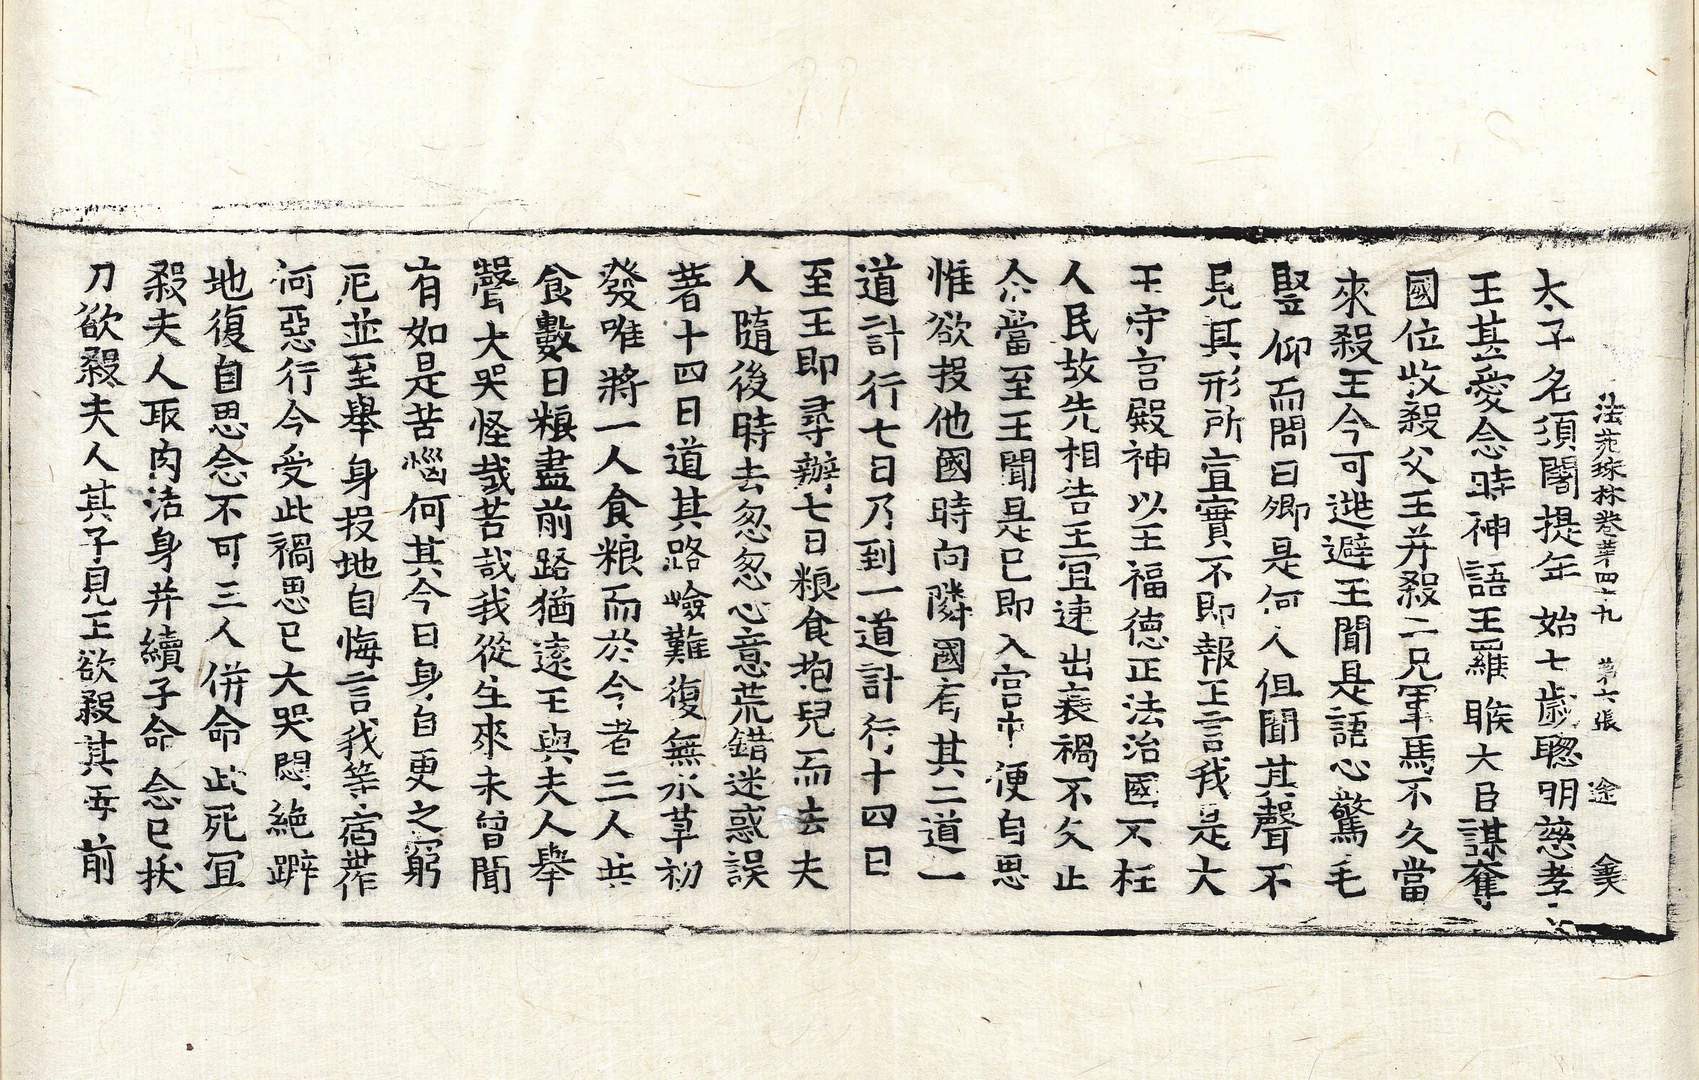 法苑珠林卷第四十九 第六張 途
太子名須闍提年始七歲聰明慈孝
王甚愛念時神語王羅睺大臣謀奪
國位收殺父王并殺二兄軍馬不久當
來殺王今可逃避王聞是語心驚毛
竪仰而問曰卿是何人但聞其聲不
見其形所宣實不即報王言我是大
王守宮殿神以王福德正法治國不枉
人民故先相告王宜速出衰禍不久止
今當至王聞是已即入宮中便自思
惟欲投他國時向隣國有其二道一
道計行七日乃到一道計行十四日
至王即尋辦七日粮食抱兒而去夫
人隨後時去忽忽心意荒錯迷惑誤
著十四日道其路嶮難復無水草初
發唯將一人食粮而於今者三人共
食數日粮盡前路猶遠王與夫人舉
聲大哭怪哉苦哉我從生來未曾聞
有如是苦惱何其今日身自更之窮
厄並至舉身投地自悔言我等宿作
何惡行今受此禍思已大哭悶絶躃
地復自思念不可三人併命此死宜
殺夫人取肉活身并續子命念已拔
刀欲殺夫人其子見王欲殺其母前